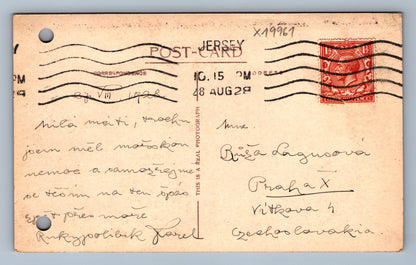 X19961
JERSEY
POST-CARD
CORRESPONDENCE
ADDRESS
10.15 PM
28 AUG 28
PM
THIS IS A REAL PHOTOGRAPH
VIII. 1928
Milá máti, trochu
jsem měl mořskou
nemoc a samozřejmě
se těším na ten špás
zpět přes moře
Rukypolibek Karel
Mme
Růža Lagusová
Praha X
Vítkova 4
Czechoslovakia.